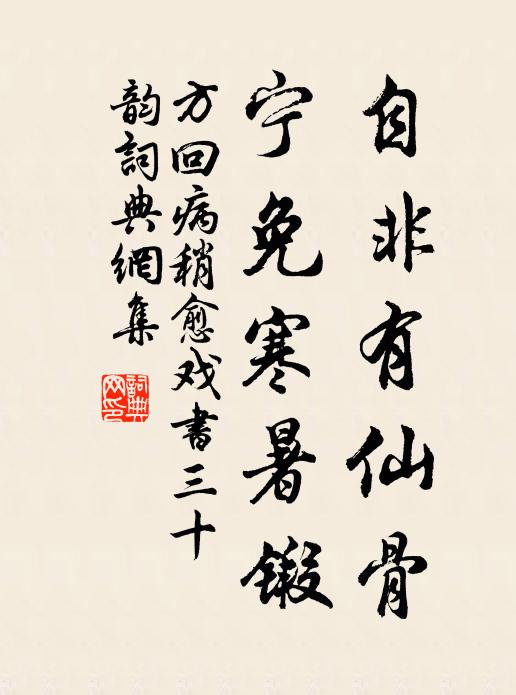 自非有仙骨
宁免寒暑锻
方回病稍愈戏書三十
韵詞典網集
詞典
网印